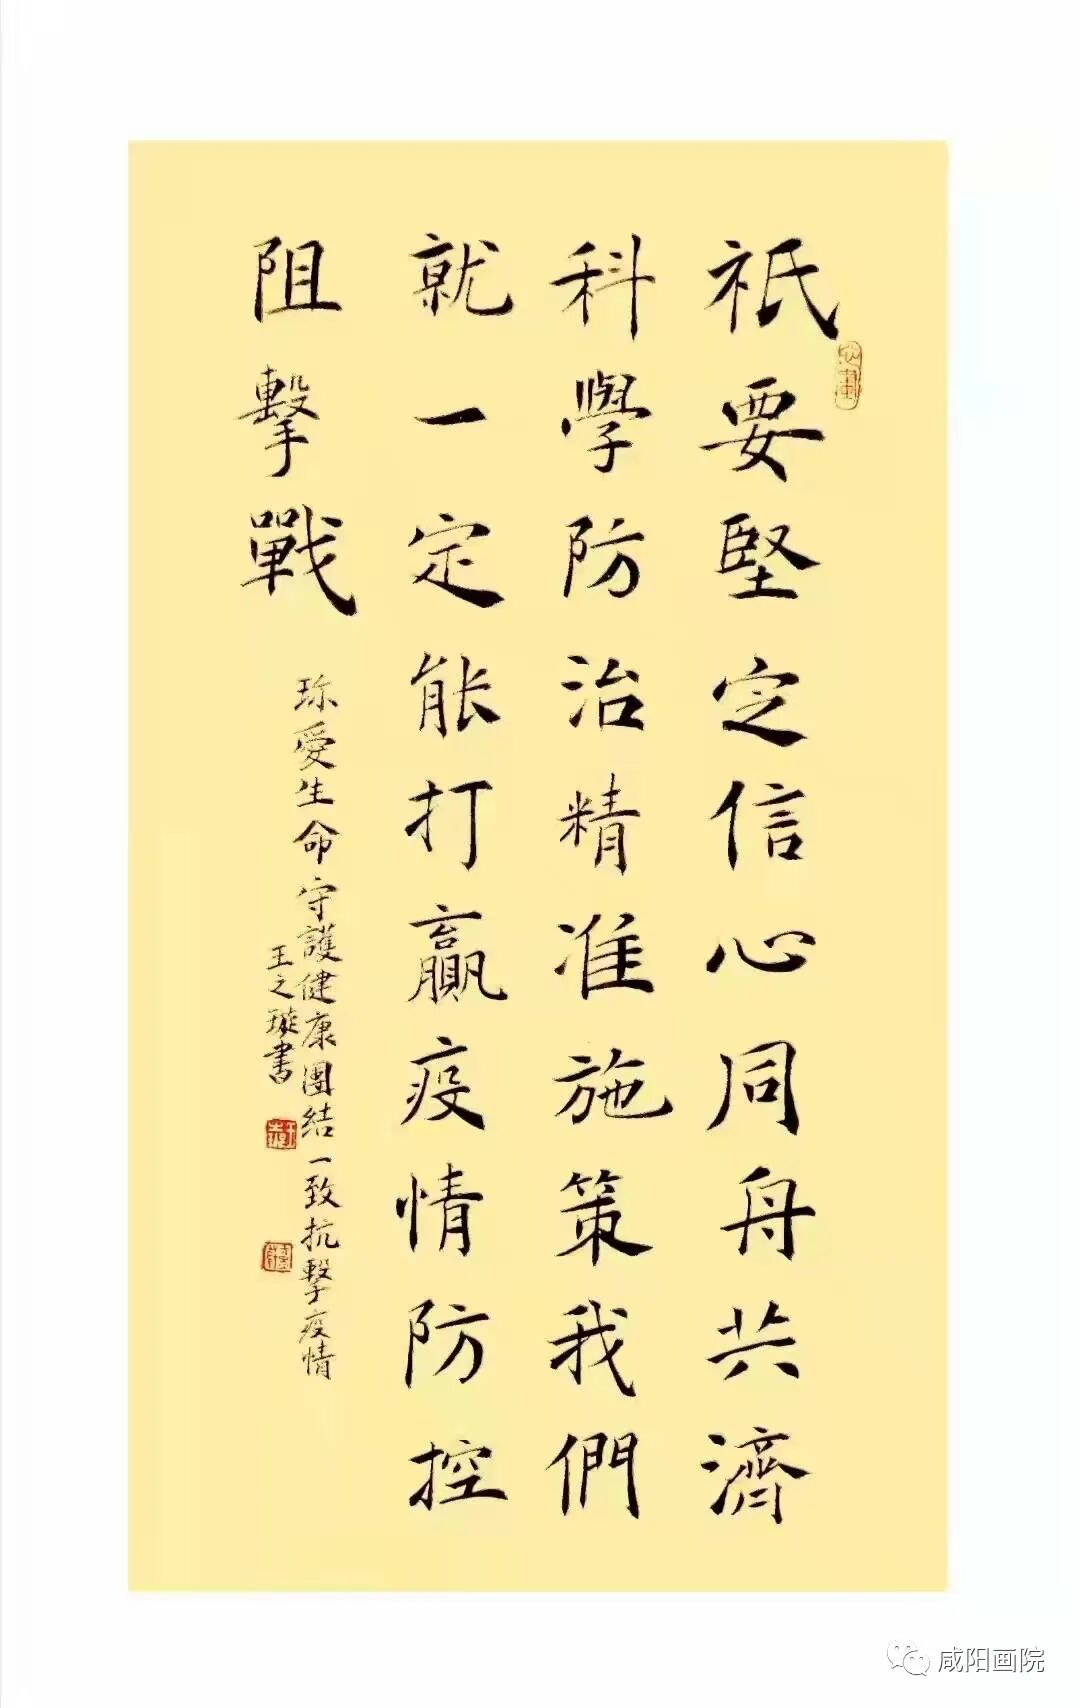 祇要堅定信心同舟共濟
科學防治精准施策我們
就一定能打贏疫情防控
阻擊戰
珎愛生命守護健康團結一致抗擊疫情
王之璇書
咸阳画院